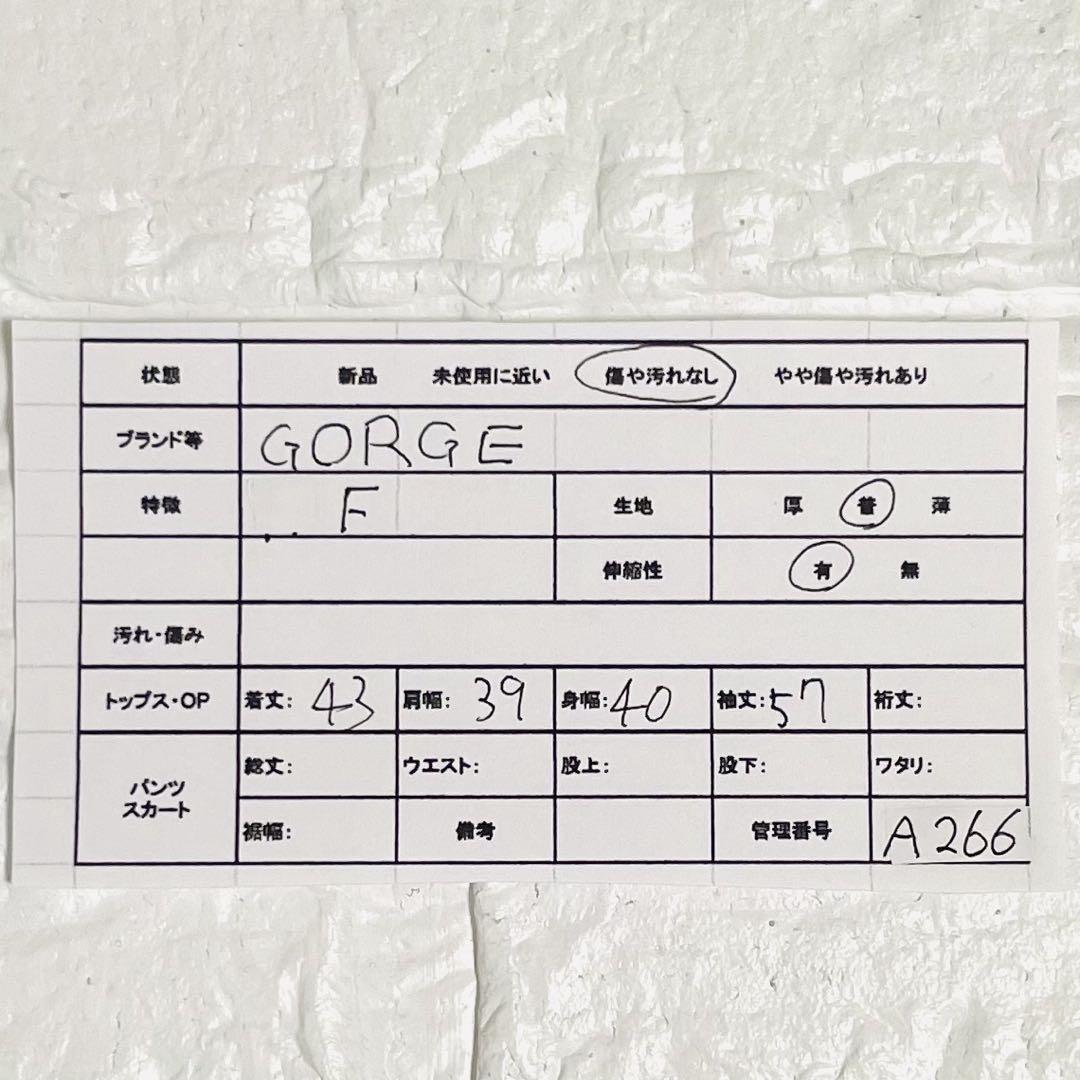 状態 新品 未使用に近い 傷や汚れなし やや傷や汚れあり
ブランド等 GORGE
特徴 F 生地 厚 普 薄
伸縮性 有 無
汚れ・傷み
トップス・OP 着丈: 43 肩幅: 39 身幅: 40 袖丈: 57 裄丈:
パンツ
スカート
総丈: ウエスト: 股上: 股下: ワタリ:
裾幅: 備考 管理番号 A266